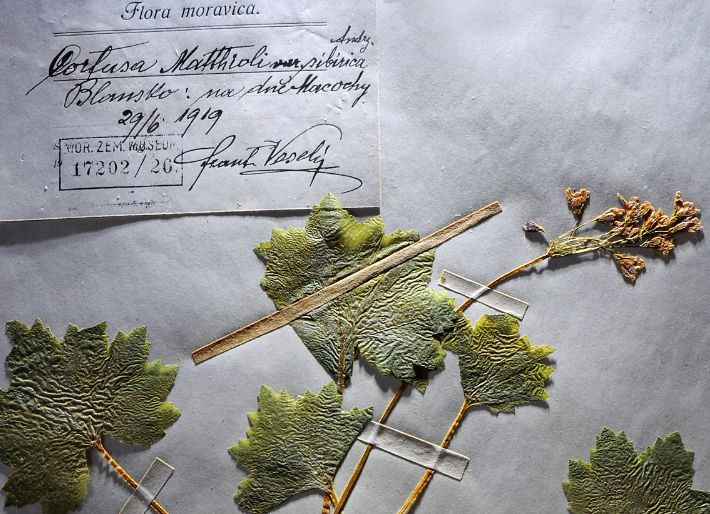 Flora moravica.
Andrz.
Cortusa Matthioli var. sibirica
Blansko: na dně Macochy
29/6 1919
MOR. ZEM. MUSEUM
17202/26.
Frant Veselý